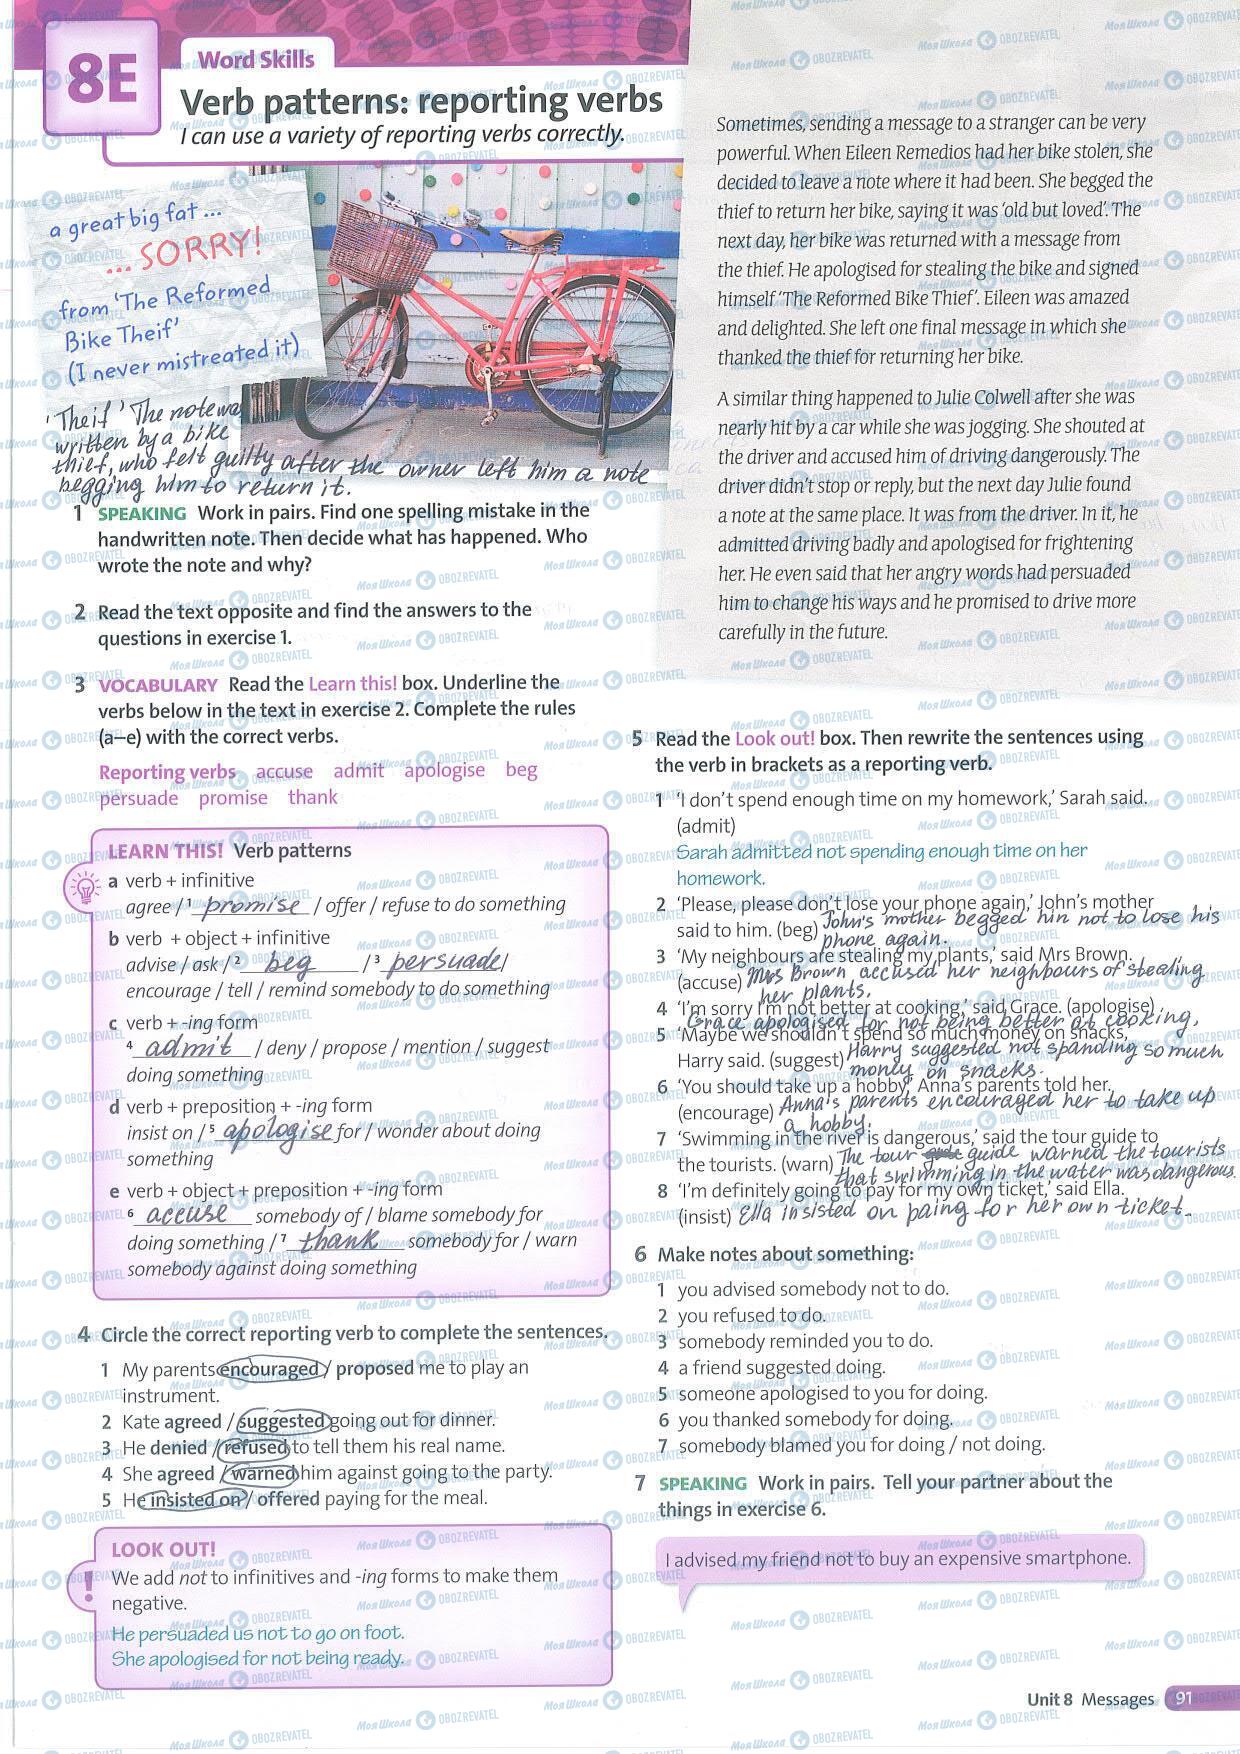 8E
Word Skills
Verb patterns: reporting verbs
I can use a variety of reporting verbs correctly.
a great big fat ...
... SORRY!
from 'The Reformed
Bike Theif'
(I never mistreated it)
'Theif' The note was
written by a bike
thief, who felt guilty after the owner left him a note
begging him to return it.
1 SPEAKING Work in pairs. Find one spelling mistake in the
handwritten note. Then decide what has happened. Who
wrote the note and why?
2 Read the text opposite and find the answers to the
questions in exercise 1.
3 VOCABULARY Read the Learn this! box. Underline the
verbs below in the text in exercise 2. Complete the rules
(a–e) with the correct verbs.
Reporting verbs accuse admit apologise beg
persuade promise thank
LEARN THIS! Verb patterns
a verb + infinitive
agree / 1 promise / offer / refuse to do something
b verb + object + infinitive
advise / ask / 2 beg / 3 persuade /
encourage / tell / remind somebody to do something
c verb + -ing form
4 admit / deny / propose / mention / suggest
doing something
d verb + preposition + -ing form
insist on / 5 apologise for / wonder about doing
something
e verb + object + preposition + -ing form
6 accuse somebody of / blame somebody for
doing something / 7 thank somebody for / warn
somebody against doing something
4 Circle the correct reporting verb to complete the sentences.
1 My parents encouraged / proposed me to play an
instrument.
2 Kate agreed / suggested going out for dinner.
3 He denied / refused to tell them his real name.
4 She agreed / warned him against going to the party.
5 He insisted on / offered paying for the meal.
LOOK OUT!
We add not to infinitives and -ing forms to make them
negative.
He persuaded us not to go on foot.
She apologised for not being ready.
Sometimes, sending a message to a stranger can be very
powerful. When Eileen Remedios had her bike stolen, she
decided to leave a note where it had been. She begged the
thief to return her bike, saying it was 'old but loved'. The
next day, her bike was returned with a message from
the thief. He apologised for stealing the bike and signed
himself 'The Reformed Bike Thief'. Eileen was amazed
and delighted. She left one final message in which she
thanked the thief for returning her bike.
A similar thing happened to Julie Colwell after she was
nearly hit by a car while she was jogging. She shouted at
the driver and accused him of driving dangerously. The
driver didn't stop or reply, but the next day Julie found
a note at the same place. It was from the driver. In it, he
admitted driving badly and apologised for frightening
her. He even said that her angry words had persuaded
him to change his ways and he promised to drive more
carefully in the future.
5 Read the Look out! box. Then rewrite the sentences using
the verb in brackets as a reporting verb.
1 'I don't spend enough time on my homework,' Sarah said.
(admit)
Sarah admitted not spending enough time on her
homework.
2 'Please, please don't lose your phone again,' John's mother
said to him. (beg) John's mother begged him not to lose his
phone again.
3 'My neighbours are stealing my plants,' said Mrs Brown.
(accuse) Mrs Brown accused her neighbours of stealing
her plants.
4 'I'm sorry I'm not better at cooking,' said Grace. (apologise)
Grace apologised for not being better at cooking,
5 'Maybe we shouldn't spend so much money on snacks,'
Harry said. (suggest) Harry suggested not spanding so much
money on snacks.
6 'You should take up a hobby,' Anna's parents told her.
(encourage) Anna's parents encouraged her to take up
a hobby.
7 'Swimming in the river is dangerous,' said the tour guide to
the tourists. (warn) The tour guide warned the tourists
that swimming in the water was dangerous.
8 'I'm definitely going to pay for my own ticket,' said Ella.
(insist) Ella insisted on paing for her own ticket.
6 Make notes about something:
1 you advised somebody not to do.
2 you refused to do.
3 somebody reminded you to do.
4 a friend suggested doing.
5 someone apologised to you for doing.
6 you thanked somebody for doing.
7 somebody blamed you for doing / not doing.
7 SPEAKING Work in pairs. Tell your partner about the
things in exercise 6.
I advised my friend not to buy an expensive smartphone.
Unit 8 Messages 91
МояШкола OBOZREVATEL